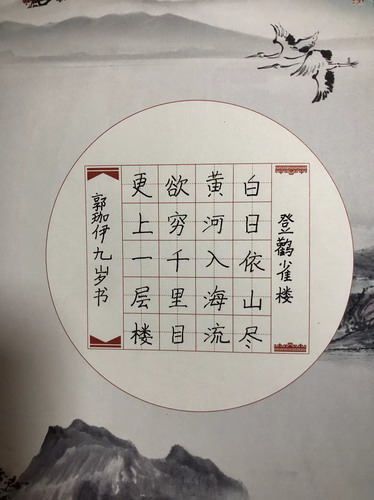 登鹳雀楼
白日依山尽
黄河入海流
欲穷千里目
更上一层楼
郭珈伊九岁书